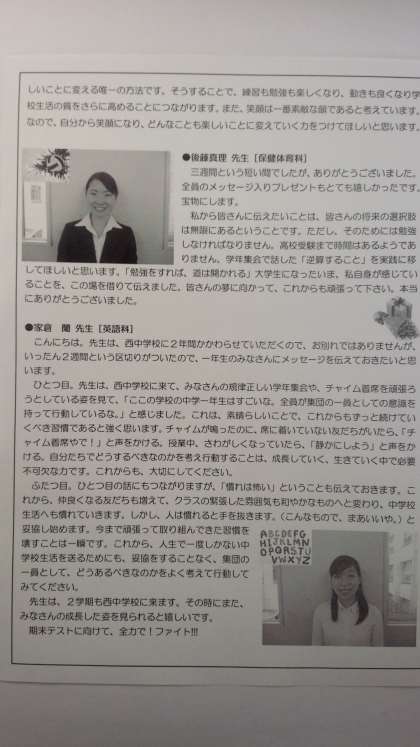 しいことに変える唯一の方法です。そうすることで、練習も勉強も楽しくなり、動きも良くなり学
校生活の質をさらに高めることにつながります。また、笑顔は一番素敵な顔であると考えています。
なので、自分から笑顔になり、どんなことも楽しいことに変えていく力をつけてほしいと思います。
●後藤真理 先生［保健体育科］
三週間という短い間でしたが、ありがとうございました。
全員のメッセージ入りプレゼントもとても嬉しかったです。
宝物にします。
私から皆さんに伝えたいことは、皆さんの将来の選択肢
は無限にあるということです。ただし、そのためには勉強
しなければなりません。高校受験まで時間はあるようであ
りません。学年集会で話した「逆算すること」を実践に移
してほしいと思います。「勉強をすれば、道は開かれる」大学生になったいま、私自身が感じてい
ることを、この場を借りて伝えました。皆さんの夢に向かって、これからも頑張って下さい。本当
にありがとうございました。
●家倉 蘭 先生［英語科］
こんにちは。先生は、西中学校に２年間かかわらせていただくので、お別れではありませんが、
いったん２週間という区切りがついたので、一年生のみなさんにメッセージを伝えておきたいと思
います。
ひとつ目。先生は、西中学校に来て、みなさんの規律正しい学年集会や、チャイム着席を頑張ろ
うとしている姿を見て、「ここの学校の中学一年生はすごいな。全員が集団の一員としての意識を
持って行動しているな。」と感じました。これは、素晴らしいことで、これからもずっと続けてい
くべき習慣であると強く思います。チャイムが鳴ったのに、席に着いていない友だちがいたら、「チ
ャイム着席やで！」と声をかける。授業中、さわがしくなっていたら、「静かにしよう」と声をか
ける。自分たちでどうするべきなのかを考え行動することは、成長していく、生きていく中で必要
不可欠な力です。これからも、大切にしてください。
ふたつ目。ひとつ目の話にもつながりますが、「慣れは怖い」ということも伝えておきます。こ
れから、仲良くなる友だちも増えて、クラスの緊張した雰囲気も和やかなものへと変わり、中学校
生活へも慣れていきます。しかし、人は慣れると手を抜きます。（こんなもので、まあいいや。）と
妥協し始めます。今まで頑張って取り組んできた習慣を
壊すことは一瞬です。これから、人生で一度しかない中
学校生活を送るためにも、妥協をすることなく、集団の
一員として、どうあるべきなのかをよく考えて行動して
みてください。
先生は、２学期も西中学校に来ます。その時にまた、
みなさんの成長した姿を見られると嬉しいです。
期末テストに向けて、全力で！ファイト!!!
ABCDEFG
HIJKLMN
OPQRSTU
VWXYZ